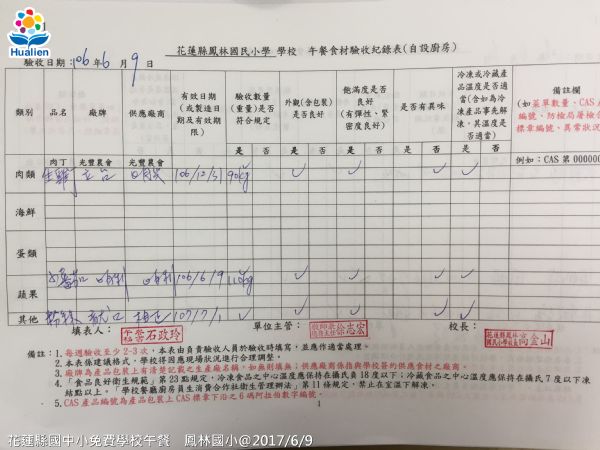 Hualien
花蓮縣鳳林國民小學 學校 午餐食材驗收紀錄表(自設廚房)
驗收日期：106年6月9日
類別 品名 廠牌 供應廠商 有效日期(或製造日期及有效期限) 驗收數量(重量)是否符合規定 外觀(含包裝)是否良好 飽滿度是否良好(有彈性、緊密度良好) 是否有異味 冷凍或冷藏產品溫度是否適當(含如為冷凍產品事先解凍，其溫度是否適當) 備註欄
(如菜單數量、CAS
編號、防檢局屠檢合
標章編號、異常狀況
是 否 是 否 是 否 是 否 是 否 例如：CAS 第 000000
肉類 肉丁 光豐農會 光豐農會
106/12/31 90kg
海鮮
蛋類
蔬果 106/6/9 110kg
其他 107/7/1
填表人： 石政玲 單位主管： 徐志宏 校長：
備註：1.每週驗收至少2-3次，本表由負責驗收人員於驗收時填寫，並應作適當處理。
2.本表係建議格式，學校得因應現場狀況進行合理調整。
3.廠牌為產品包裝上有清楚記載之生產廠名稱，如無則填無；供應廠商係指與學校簽約供應食材之廠商。
4.「食品良好衛生規範」第23點規定，冷凍食品之中心溫度應保持在攝氏負18度以下；冷藏食品之中心溫度應保持在攝氏7度以下凍
結點以上。「學校餐廳廚房員生消費合作社衛生管理辦法」第11條規定，禁止在室溫下解凍。
5.CAS產品編號為產品包裝上CAS標章下沿之6碼阿拉伯數字編號。
1
花蓮縣國中小免費學校午餐 鳳林國小@2017/6/9